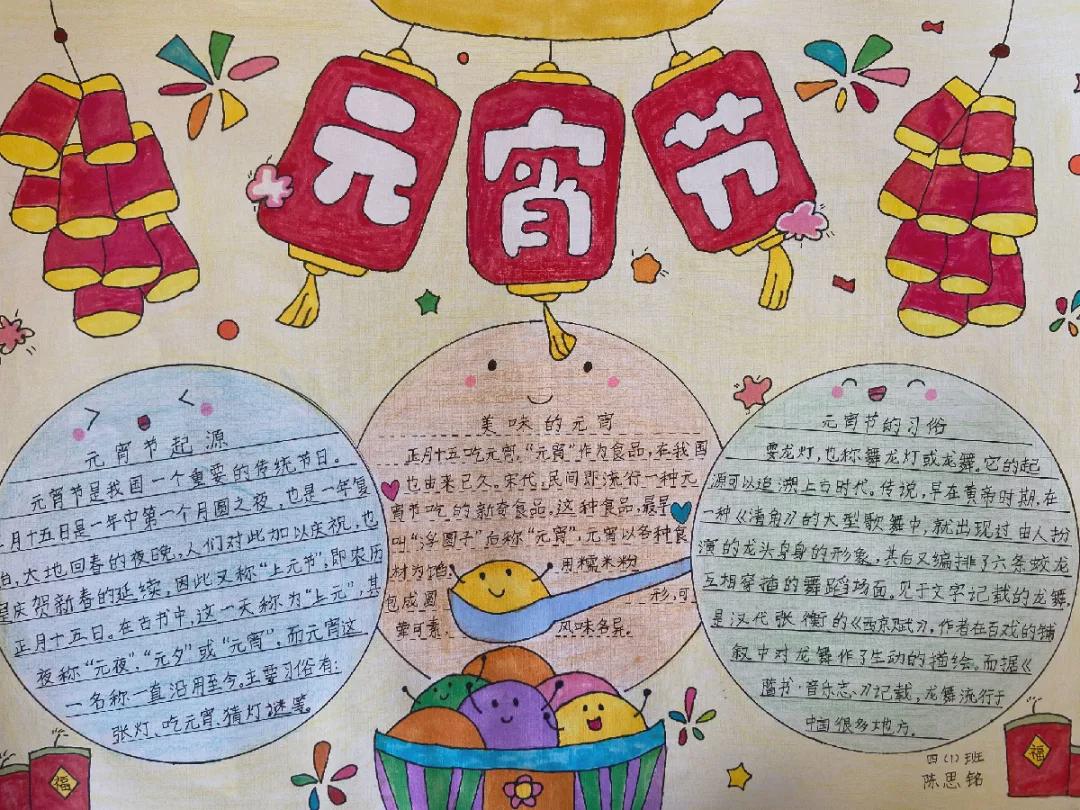 元宵节
元宵节起源
元宵节是我国一个重要的传统节日。
正月十五日是一年中第一个月圆之夜，也是一年复
始，大地回春的夜晚，人们对此加以庆祝，也
是庆贺新春的延续，因此又称“上元节”，即农历
正月十五日。在古书中，这一天称为“上元”，其
夜称“元夜”、“元夕”或“元宵”，而元宵这
一名称一直沿用至今。主要习俗有：
张灯、吃元宵、猜灯谜等。
美味的元宵
正月十五吃元宵，“元宵”作为食品，在我国
也由来已久。宋代，民间即流行一种元
宵节吃的新奇食品。这种食品，最早
叫“浮圆子”后称“元宵”，元宵以各种食
材为馅，用糯米粉
包成圆形，可
荤可素，风味各异。
元宵节的习俗
耍龙灯，也称舞龙灯或龙舞。它的起
源可以追溯上古时代。传说，早在黄帝时期，在
一种《清角》的大型歌舞中，就出现过由人扮
演的龙头鸟身的形象，其后又编排了六条蛟龙
互相穿插的舞蹈场面。见于文字记载的龙舞，
是汉代张衡的《西京赋》，作者在百戏的铺
叙中对龙舞作了生动的描绘。而据《
隋书·音乐志》记载，龙舞流行于
中国很多地方。
四（1）班
陈思铭
福
福